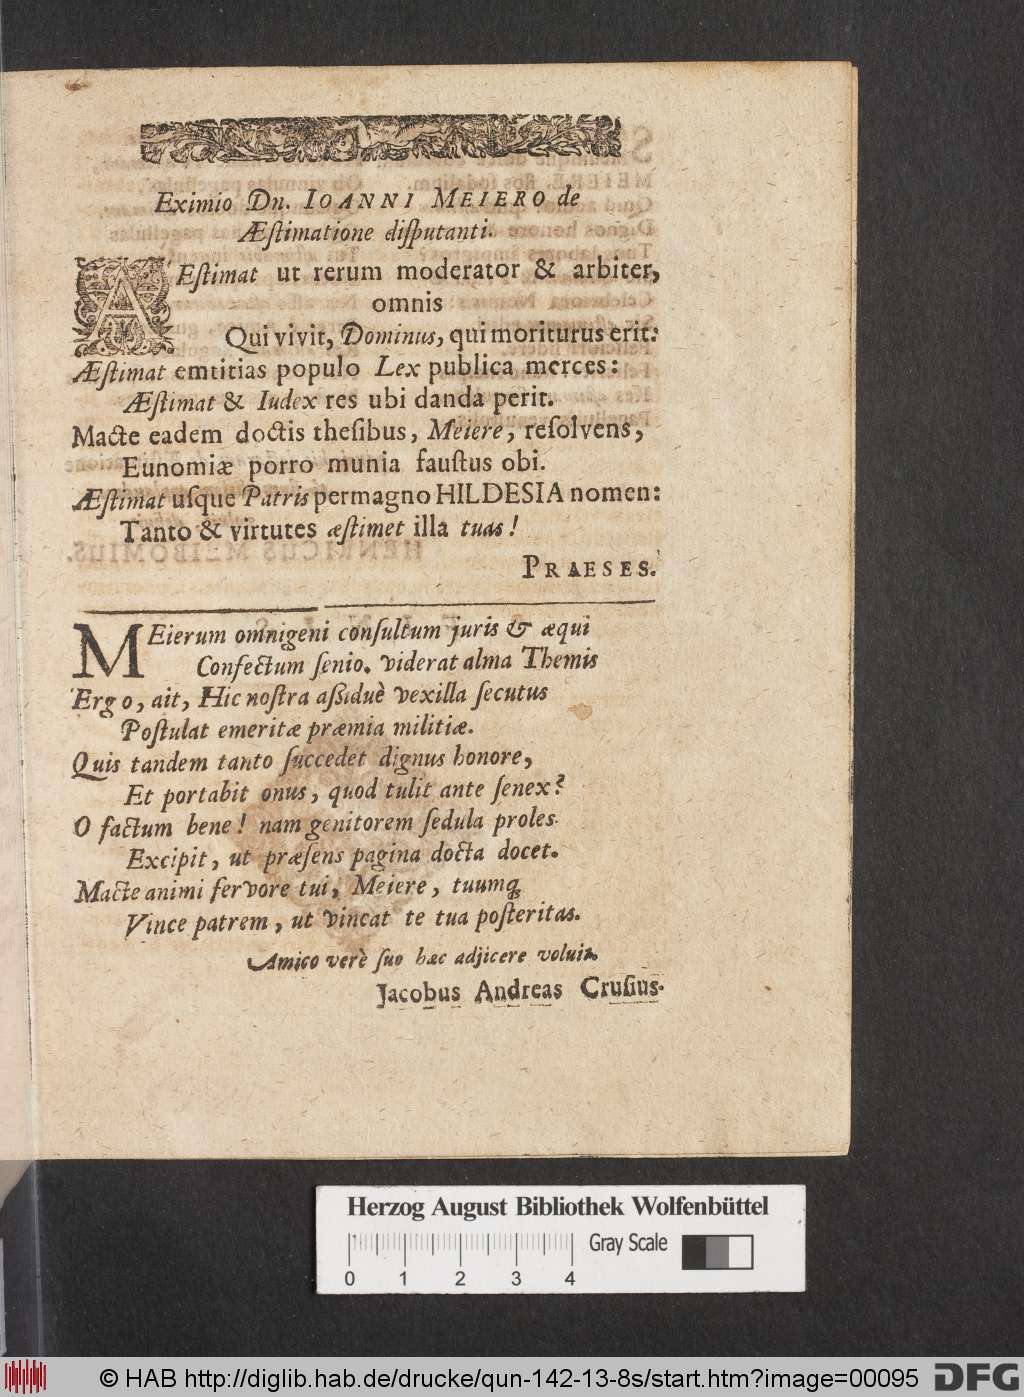 Eximio Dn. IOANNI MEIERO de
Æſtimatione diſputanti.
AEſtimat ut rerum moderator & arbiter,
omnis
Qui vivit, Dominus, qui moriturus erit:
Æſtimat emtitias populo Lex publica merces:
Æſtimat & Iudex res ubi danda perit.
Macte eadem doctis theſibus, Meiere, reſolvens,
Eunomiæ porro munia fauſtus obi.
Æſtimat uſque Patris permagno HILDESIA nomen:
Tanto & virtutes æſtimet illa tuas!
PRAESES.
MEierum omnigeni conſultum juris & æqui
Confectum ſenio. viderat alma Themis
Ergo, ait, Hic noſtra aßiduè vexilla ſecutus
Poſtulat emeritæ præmia militiæ.
Quis tandem tanto ſuccedet dignus honore,
Et portabit onus, quod tulit ante ſenex?
O factum bene! nam genitorem ſedula proles
Excipit, ut præſens pagina docta docet.
Macte animi fervore tui, Meiere, tuumq́;
Vince patrem, ut vincat te tua poſteritas.
Amico verè ſuo hæc adjicere voluit
Jacobus Andreas Cruſius.
Herzog August Bibliothek Wolfenbüttel
Gray Scale
0 1 2 3 4
© HAB http://diglib.hab.de/drucke/qun-142-13-8s/start.htm?image=00095
DFG